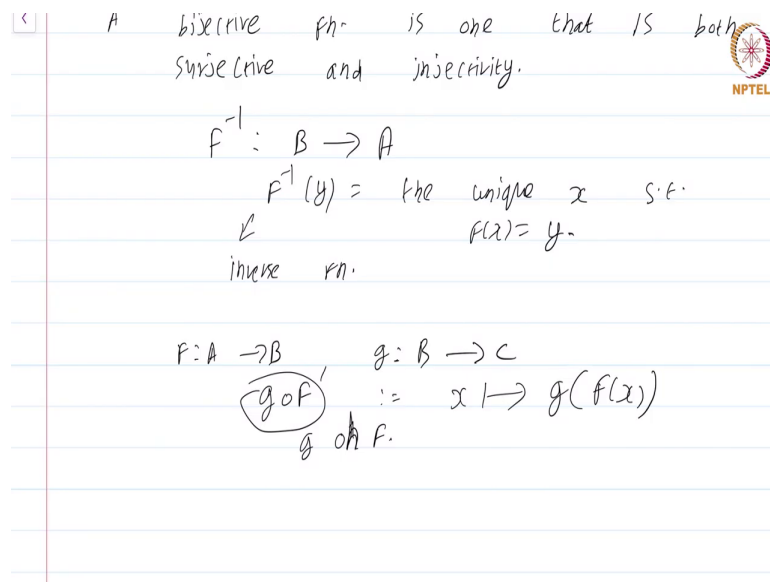 A bijective fn. is one that is both
surjective and injectivity.
NPTEL
F⁻¹ : B → A
F⁻¹(y) = the unique x s.t.
F(x) = y.
inverse fn.
F : A → B, g : B → C
g o F := x ↦ g(F(x))
g on F.